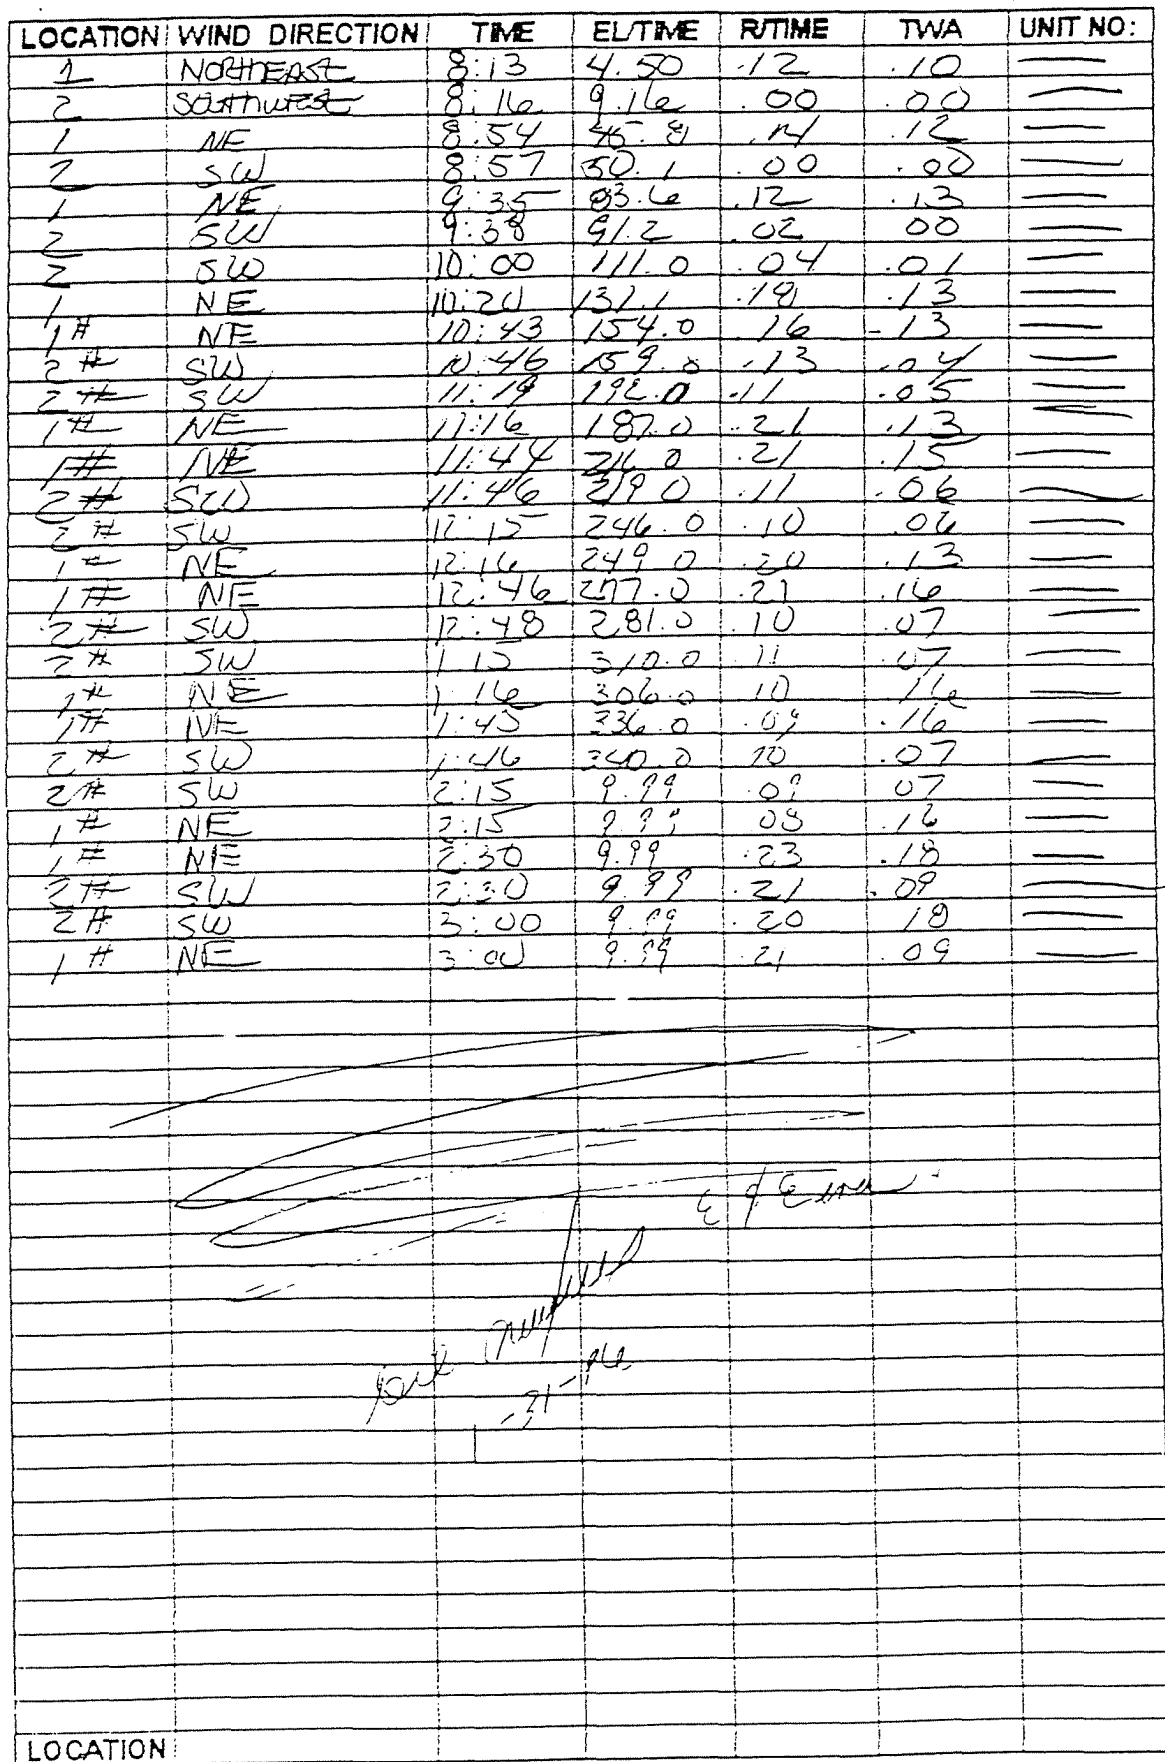 LOCATION WIND DIRECTION TIME EL/TIME R/TIME TWA UNIT NO:
1 NORTHEAST 8:13 4.50 .12 .10 —
2 SOUTHWEST 8:16 9.16 .00 .00 —
1 NE 8:54 45.8 .14 .12 —
2 SW 8:57 50.1 .00 .00 —
1 NE 9:35 83.6 .12 .13 —
2 SW 9:38 91.2 .02 00 —
2 SW 10:00 111.0 .04 .01 —
1 NE 10:20 131.1 .18 .13 —
1# NE 10:43 154.0 .16 -13 —
2# SW 10:46 159.0 .13 .04 —
2# SW 11:19 192.0 .11 .05 —
1# NE 11:16 187.0 .21 .13 —
1# NE 11:44 216.0 .21 .15 —
2# SW 11:46 219.0 .11 .06 —
2# SW 12:15 246.0 .10 .06 —
1# NE 12:16 249.0 .20 .13 —
1# NE 12:46 277.0 .21 .16 —
2# SW 12:48 281.0 .10 .07 —
2# SW 1:15 310.0 .11 .07 —
1# NE 1:16 306.0 .10 .16 —
1# NE 1:45 336.0 .09 .16 —
2# SW 1:46 340.0 10 .07 —
2# SW 2:15 9.99 .09 07 —
1# NE 2:15 9.99 08 .16 —
1# NE 2:30 9.99 .23 .18 —
2# SW 2:30 9.99 .21 .09 —
2# SW 3:00 9.99 .20 18 —
1# NE 3:00 9.99 .21 .09 —
LOCATION